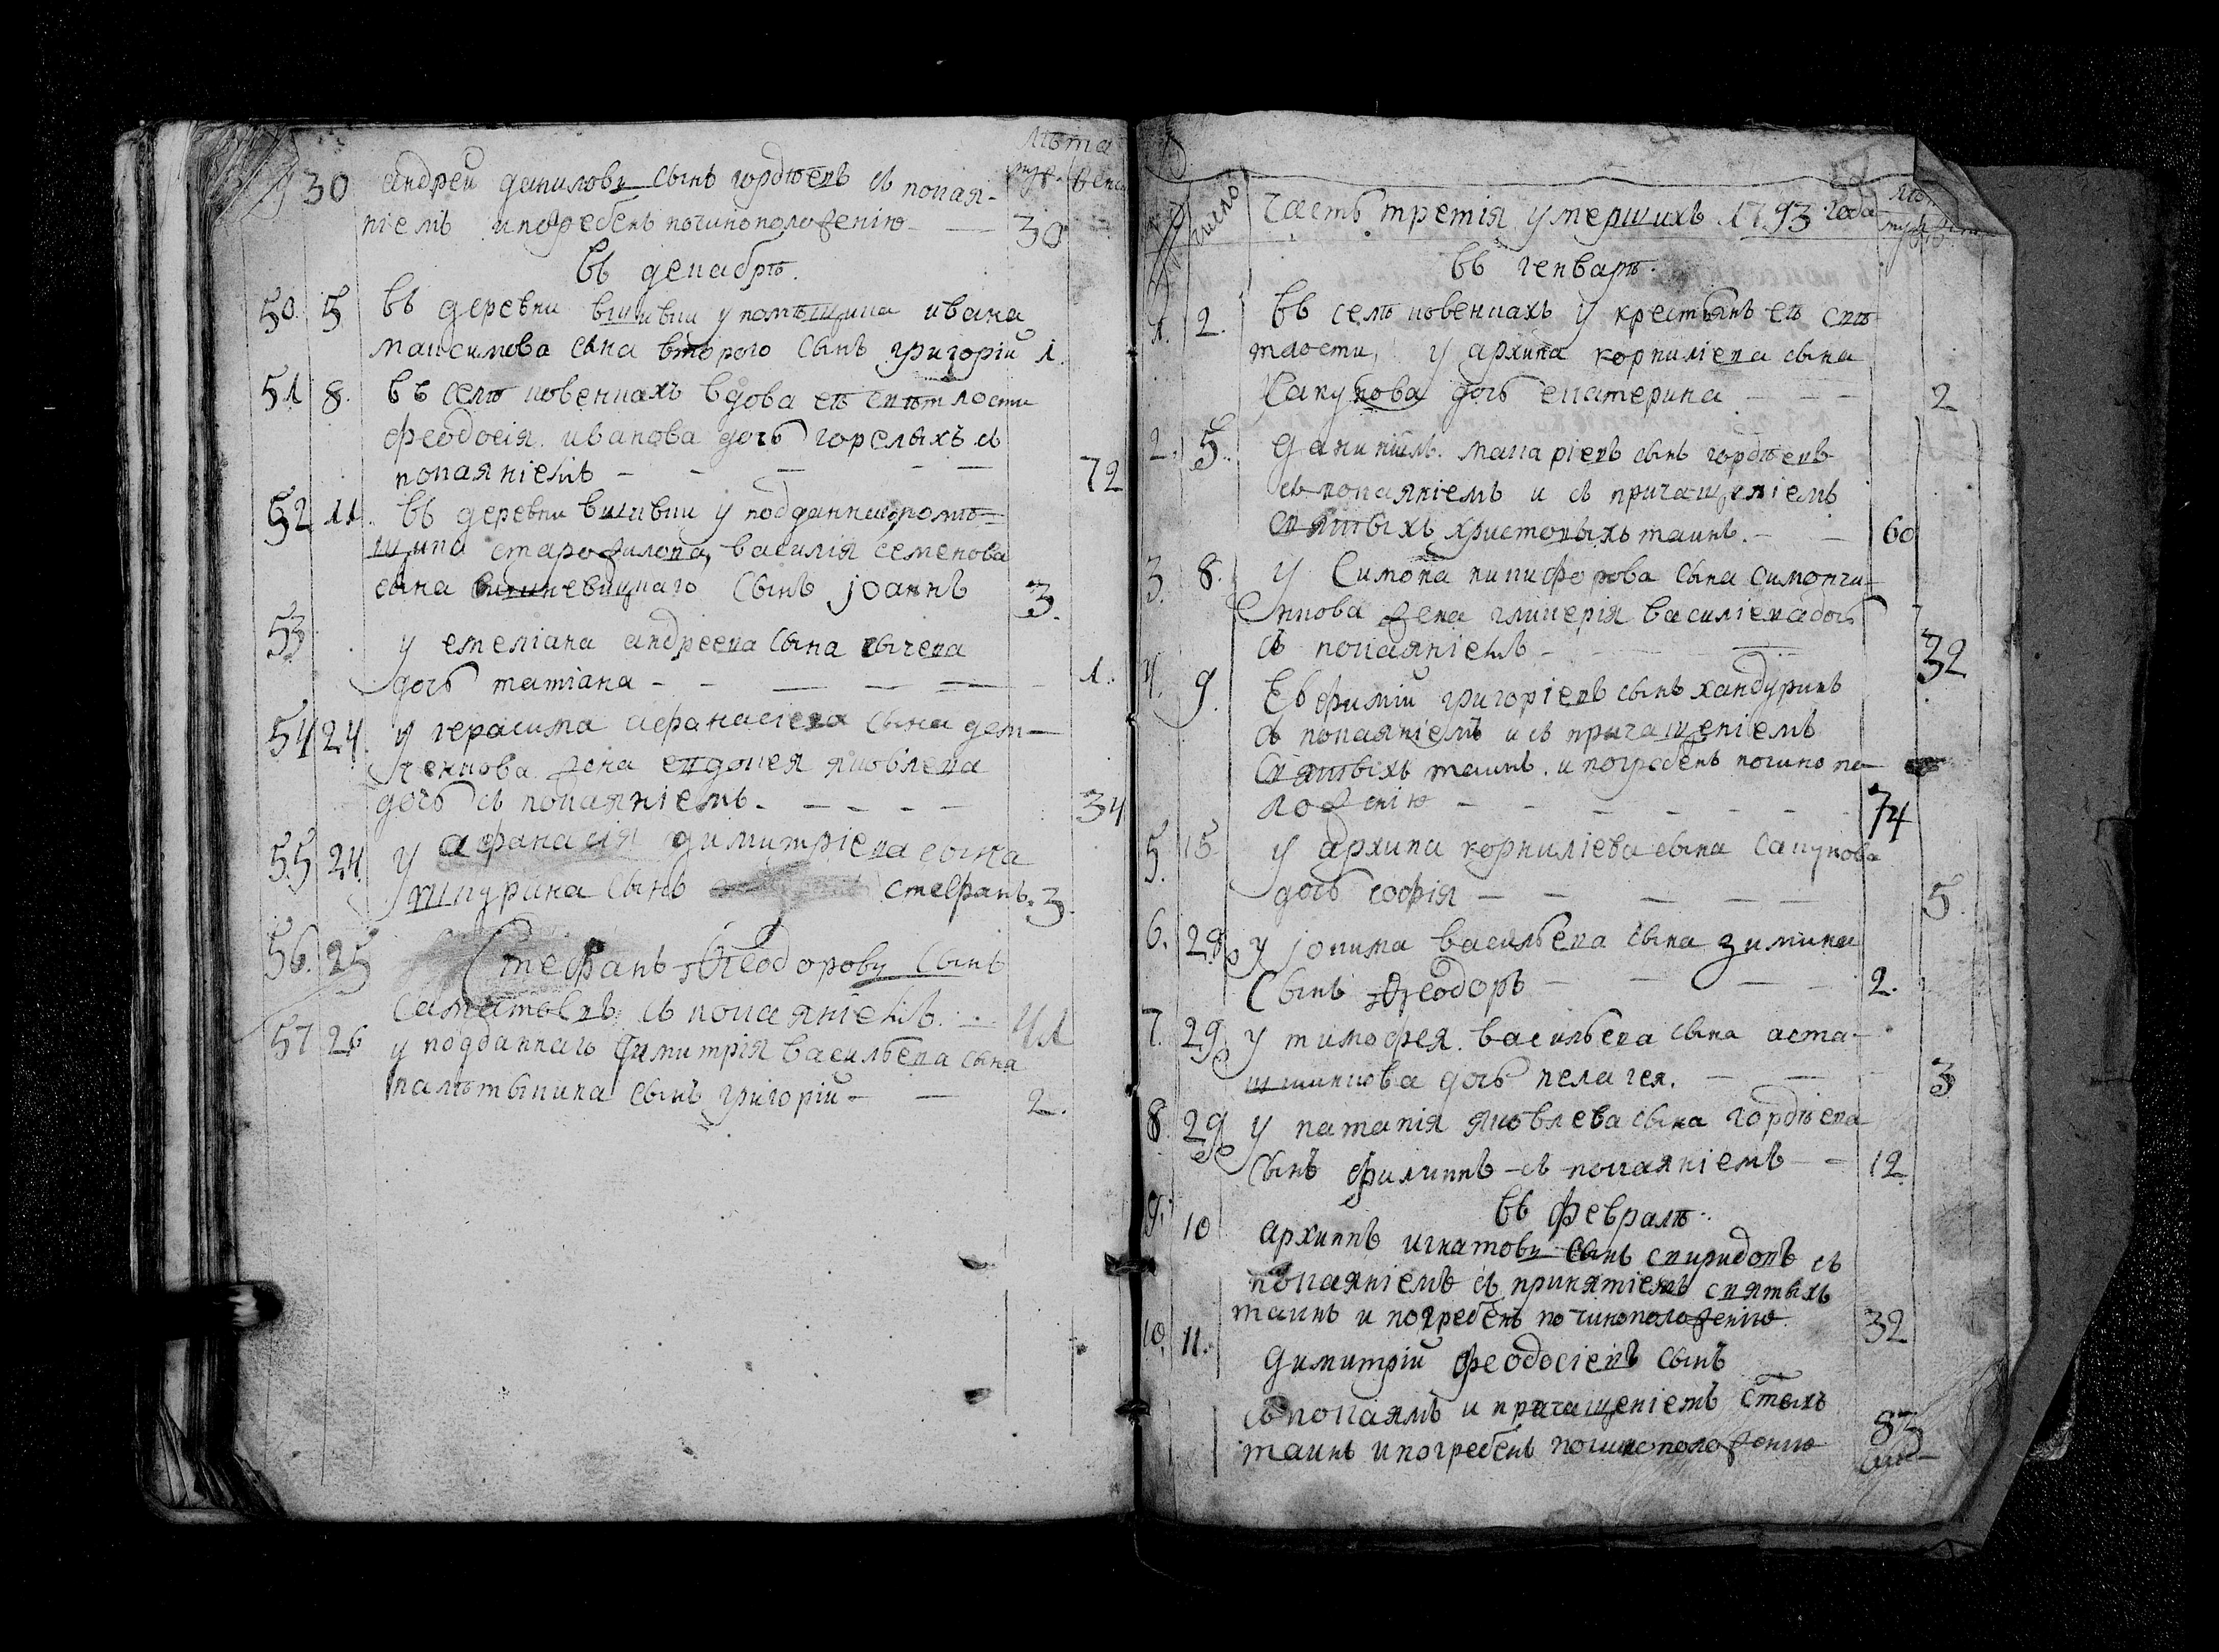 лѣта
муж. женс
30 андрей даниловъ сынъ гордѣевъ съ покая-
ніемъ и погребенъ по чиноположенію 30
въ декабрѣ.
50. 5 въ деревни вшивки у помѣщика ивана
максимова сына второго сынъ григорій 1.
51 8. въ селѣ ковенкахъ вдова ея свѣтлости
феодосія иванова дочь горелыхъ съ
покаяніемъ 72
52 11. въ деревни вшивки у подданнаго помѣ-
щика старожилова, василія семенова
сына сынъ іоаннъ 3.
53 у емеліана андреева сына сычева
дочь татіана 1.
54 24. у герасима афанасіева сына дег-
жена евдокея яковлева
дочь съ покаяніемъ. 34
55 24 у афанасія димитріева сына
сынъ стефанъ. 3.
56. 25 Стефанъ Ѳеодоровъ сынъ
съ покаяніемъ. 41
57 26 у подданнаго Димитрія васильева сына
сынъ григорій 2.
число часть третія умершихъ 1793 года
въ генварѣ.
1. 2. въ селѣ ковенкахъ у крестьянъ ея свѣ
тлости, у архипа корниліева сына
Сапунова дочь екатерина 2
2. 5. Даниилъ макаріевъ сынъ гордѣевъ
съ покаяніемъ и съ причащеніемъ
святыхъ христовыхъ таинъ. 60
3. 8. у Симона никифорова сына симончи-
енкова жена гликерія василіева дочь
съ покаяніемъ 32
4. 9. Евфимій григоріевъ сынъ хандуринъ
съ покаяніемъ и съ причащеніемъ
святыхъ таинъ. и погребенъ по чинопо-
ложенію 74
5. 15 у архипа корниліева сына Сапунова
дочь софія 5.
6. 28 у іокима васильева сына зимина
Сынъ Ѳеодоръ 2.
7. 29 у тимофея васильева сына аста-
дочь пелагея. 3
8. 29 у патапія яковлева сына гордѣева
Сынъ филиппъ съ покаяніемъ 12
въ февралѣ.
9. 10 архиппъ игнатовъ сынъ спиридовъ съ
покаяніемъ съ принятіемъ святыхъ
таинъ и погребенъ по чиноположенію. 32
10. 11. Димитрій феодосіевъ сынъ
съ покаямъ и причащеніемъ стыхъ
таинъ и погребенъ по чиноположенію 83